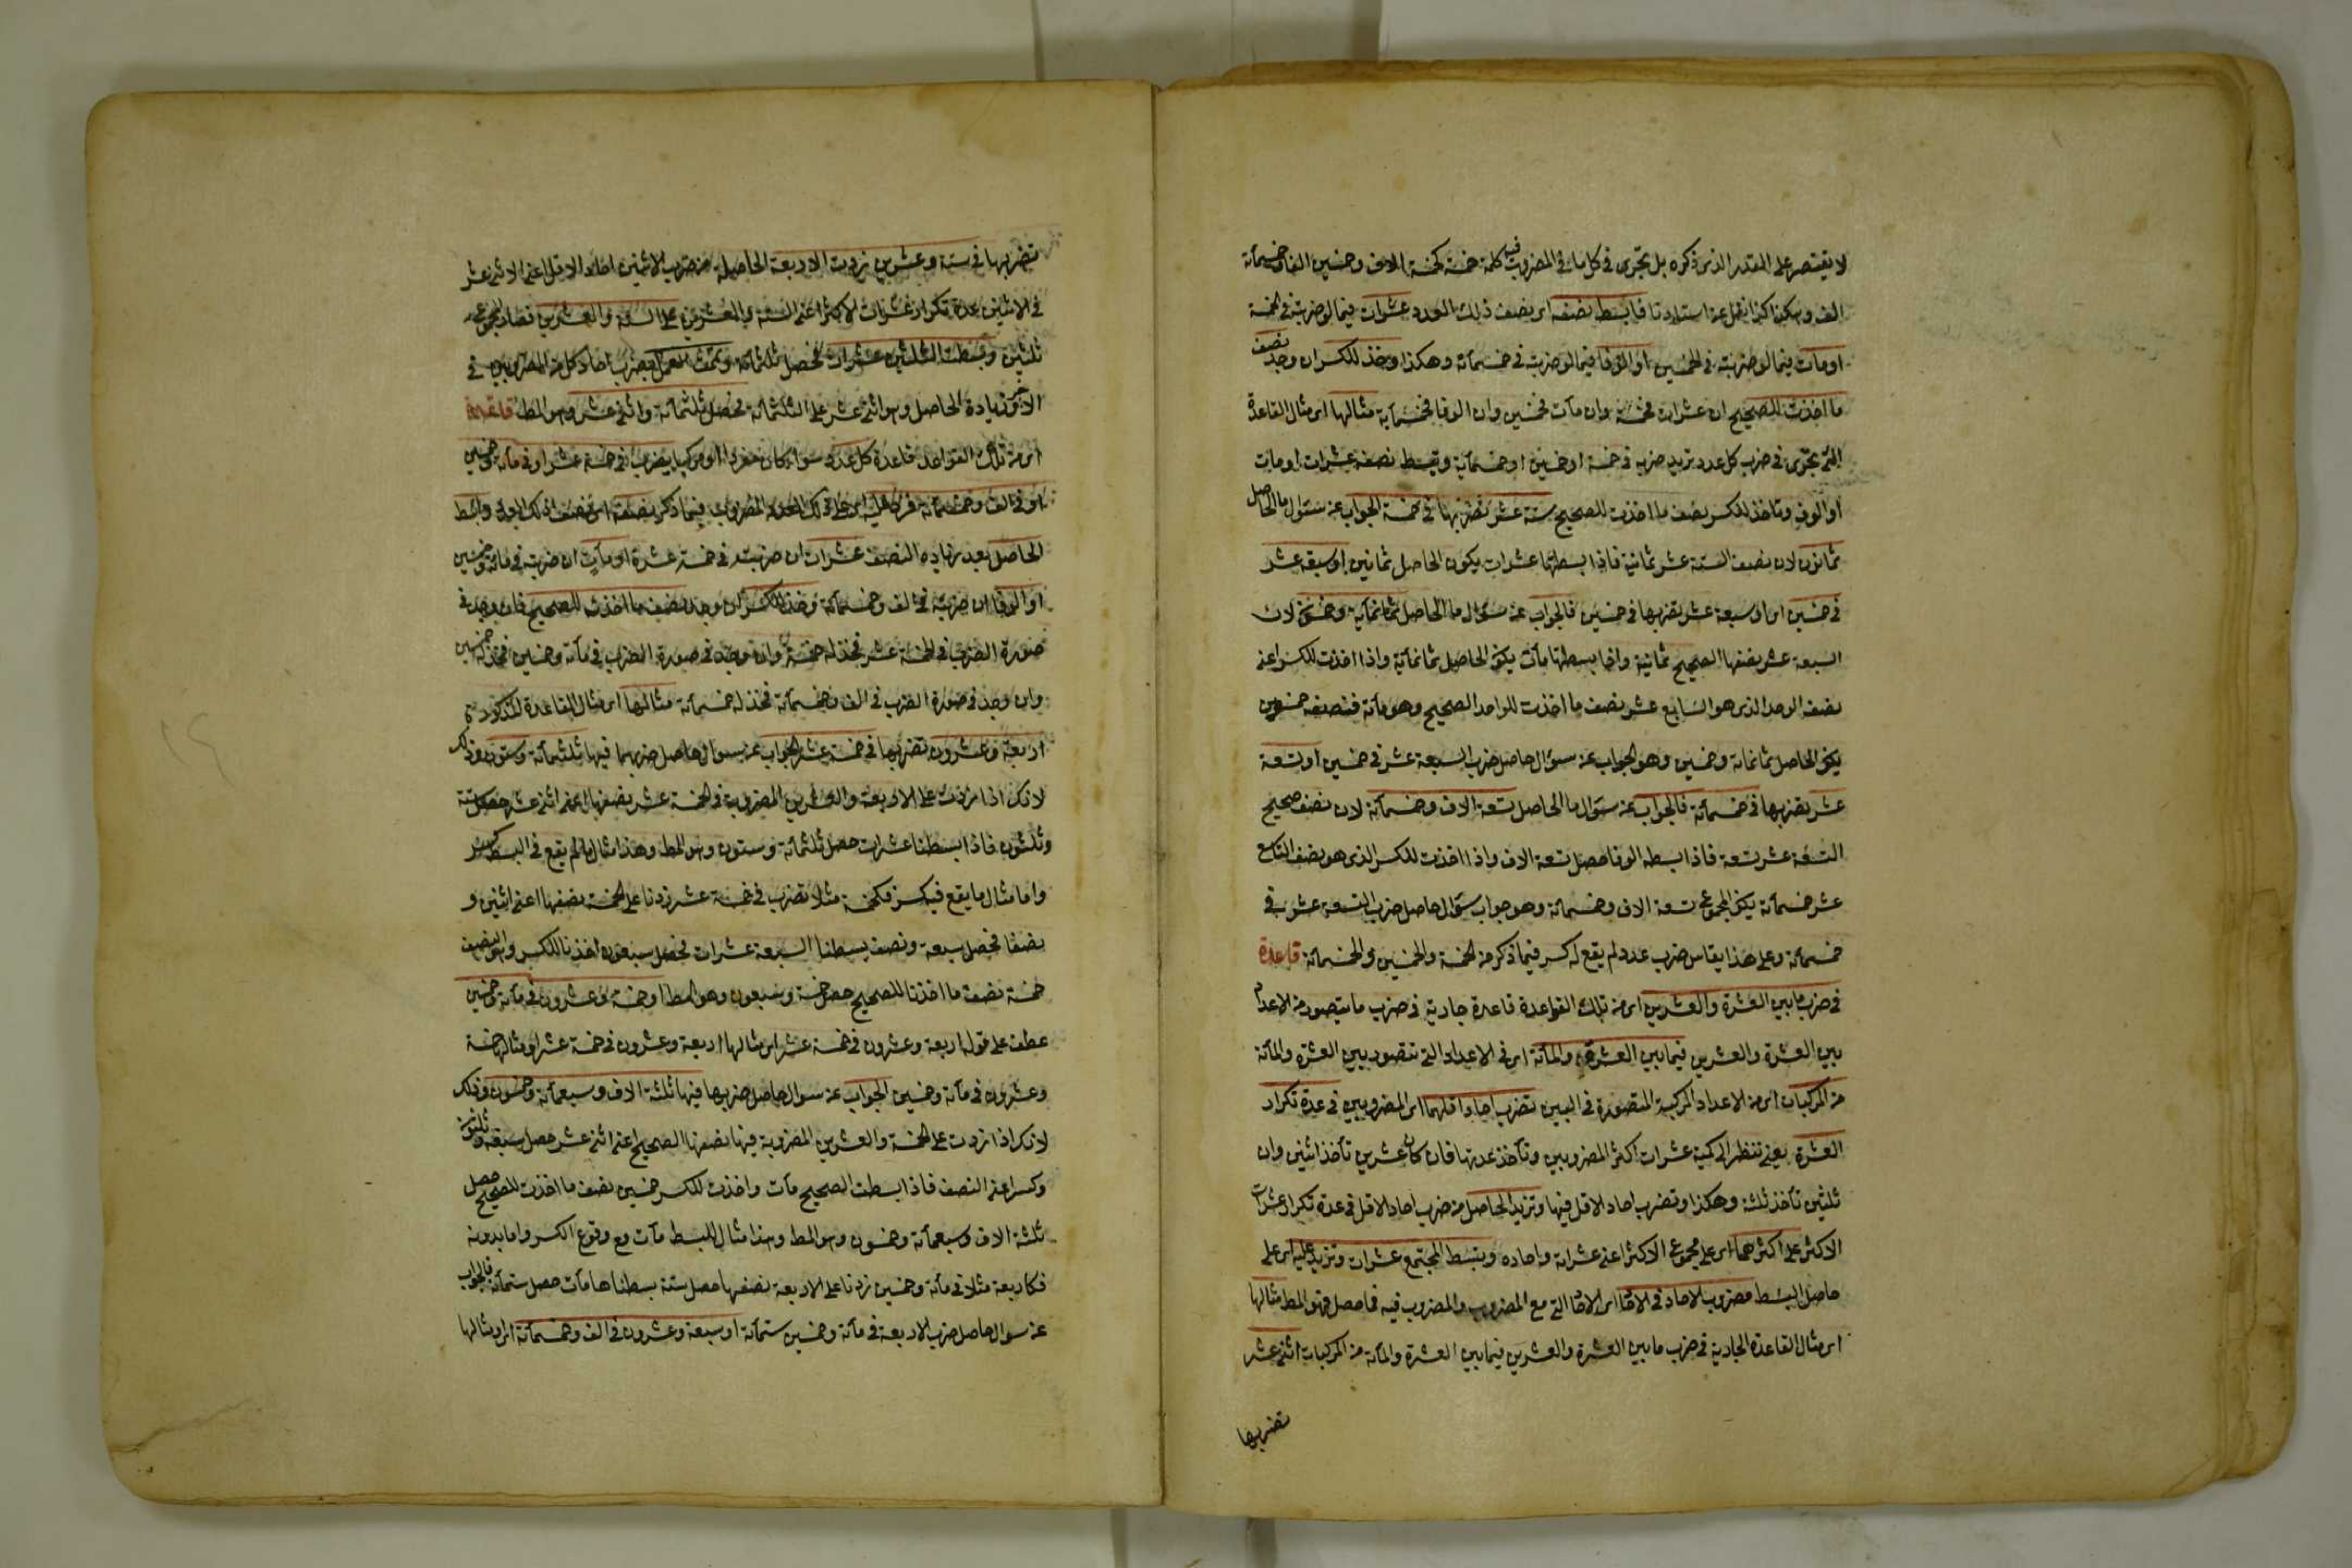 لا يقتصر على القدر الذى ذكره بل تجرى فى كل ما فى المضروب فيه كلمة خمسة كخمسة الاف وخمسين الفا وخمسمائة
الف وهكذا فابسط نصفه اى نصف ذلك العدد عشرات فيما لو ضربته فى خمسة
او مآت فيما لو ضربته فى الخمسين او الوفا فيما لو ضربته فى خمسمائة وهكذا وخذ للكسر ان وجد نصف
ما اخذت للصحيح ان عشرات فخمسة وان مآت فخمسين وان الوفا فخمسمائة مثالها اى مثال القاعدة
التى تجرى فى ضرب كل عدد تريد ضربه فى خمسة او خمسين او خمسمائة وتبسط نصفه عشرات او مآت
او الوف وتأخذ للكسر نصف ما اخذت للصحيح ستة عشر تضربها فى خمسة الجواب عن سؤال ما الحاصل
ثمانون لان نصف الستة عشر ثمانية فاذا بسطتها عشرات يكون الحاصل ثمانين او سبعة عشر
فى خمسين اى او سبعة عشر تضربها فى خمسين فالجواب عن سؤال ما الحاصل ثمانمائة وخمسون لان
السبعة عشر نصفها الصحيح ثمانية واذا بسطتها مآت يكون الحاصل ثمانمائة واذا اخذت للكسر اعنى
نصف الواحد الذى هو السابع عشر نصف ما اخذت للواحد الصحيح وهو مائة فنصفه خمسون
يكون الحاصل ثمانمائة وخمسين وهو الجواب عن سؤال حاصل ضرب السبعة عشر فى خمسين او تسعة
عشر تضربها فى خمسمائة فالجواب عن سؤال ما الحاصل تسعة الاف وخمسمائة لان نصف صحيح
التسعة عشر تسعة فاذا بسطه الوفا حصل تسعة الاف واذا اخذت للكسر الذى هو نصف التاسع
عشر خمسمائة يكون المجموع تسعة الاف وخمسمائة وهو جواب سؤال حاصل ضرب التسعة عشر فى
خمسمائة وعلى هذا يقاس ضرب عدد لم يقع له كسر فيما ذكر من الخمسة والخمسين والخمسمائة قاعدة
فى ضرب ما بين العشرة والعشرين اى من تلك القواعد قاعدة جارية فى ضرب ما يتصور من الاعداد
بين العشرة والعشرين فيما بين العشرة والمائة اى فى الاعداد التى تتصور بين العشرة والمائة
من المركبات اى من الاعداد المركبة المتصورة فى البين تضرب احاد اقلهما اى المضروبين فى عدة تكرار
العشرة يعنى تنظر الى كمية عشرات اكثر المضروبين وتأخذ عدتها فان كان عشرين تأخذ اثنين وان
ثلثين تأخذ ثلثة وهكذا وتضرب احاد الاقل فيها وتزيد الحاصل من ضرب احاد الاقل فى عدة تكرار عشرات
الاكثر على اكثرهما اى على مجموع الاكثر اعنى عشراته واحاده وتبسط المجتمع عشرات وتزيد عليه اى على
حاصل البسط مضروب الاحاد فى الاحاد اى الاحاد التى مع المضروب والمضروب فيه فما حصل فهو المط مثالها
اى مثال القاعدة الجارية فى ضرب ما بين العشرة والعشرين فيما بين العشرة والمائة من المركبات اثنى عشر
تضربها
تضربها فى ستة وعشرين زدت الاربعة الحاصلة من ضرب الاثنين احاد الاقل اعنى الاثنى عشر
فى الاثنين عدة تكرار عشرات الاكثر اعنى الستة والعشرين على الستة والعشرين فصار المجموع
ثلثين وبسطت الثلثين عشرات فحصل ثلثمائة وتممت العمل بضرب احاد كل من المضروبين فى
الاخر وزيادة الحاصل وهو اثنى عشر على الثلثمائة فحصل ثلثمائة واثنى عشر وهو المط قاعدة
اى من تلك القواعد قاعدة كل عدد سواء كان مفردا او مركبا يضرب فى خمسة عشر او فى مائة وخمسين
او فى الف وخمسمائة فزد عليه اى على ذلك العدد المضروب فيما ذكر نصفه اى نصف ذلك العدد وابسط
الحاصل بعد زيادة النصف عشرات ان ضربته فى خمسة عشرة او مآت ان ضربته فى مائة وخمسين
او الوفا ان ضربته فى الف وخمسمائة وخذ للكسر ان وجد نصف ما اخذت للصحيح فان وجد فى
صورة الضرب فى الخمسة عشر فخذ له خمسة وان وجد فى صورة الضرب فى مائة وخمسين فخذ له خمسين
وان وجد فى صورة الضرب فى الف وخمسمائة فخذ له خمسمائة مثالها اى مثال القاعدة المذكورة
اربعة وعشرون تضربها فى خمسة عشر الجواب عن سوال حاصل ضربهما فيها ثلثمائة وستون وذلك
لانك اذا زدت على الاربعة والعشرين المضروبة فى الخمسة عشر نصفها اعنى اثنى عشر حصل ستة
وثلثون فاذا بسطنا عشرات حصل ثلثمائة وستون وهو المط وهذا مثال ما لم يقع فى البسط كسر
واما مثال ما يقع فيه كسر فكخمسة مثلا تضرب فى خمسة عشر زدنا على الخمسة نصفها اعنى اثنين و
نصفا فحصل سبعة ونصف بسطنا السبعة عشرات فحصل سبعون اخذنا للكسر وهو النصف
خمسة نصف ما اخذنا للصحيح حصل خمسة وسبعون وهو المط او خمسة وعشرون فى مائة وخمسين
عطف على قوله اربعة وعشرون فى خمسة عشر اى مثالها اربعة وعشرون فى خمسة عشر او مثالها خمسة
وعشرون فى مائة وخمسين الجواب عن سوال حاصل ضربها فيها ثلثة الاف وسبعمائة وخمسون وذلك
لانك اذا زدت على الخمسة والعشرين المضروبة فيها نصفها الصحيح اعنى اثنى عشر حصل سبعة وثلثون
وكسر اعنى النصف فاذا بسطت الصحيح مآت واخذت للكسر خمسين نصف ما اخذت للصحيح حصل
ثلثة الاف وسبعمائة وخمسون وهو المط وهذا مثال للبسط مآت مع وقوع الكسر واما بدونه
فكاربعة مثلا فى مائة وخمسين زدنا على الاربعة نصفها حصل ستة بسطناها مآت حصل ستمائة فالجواب
عن سوال حاصل ضرب الاربعة فى مائة وخمسين ستمائة او سبعة وعشرون فى الف وخمسمائة اى او مثالها